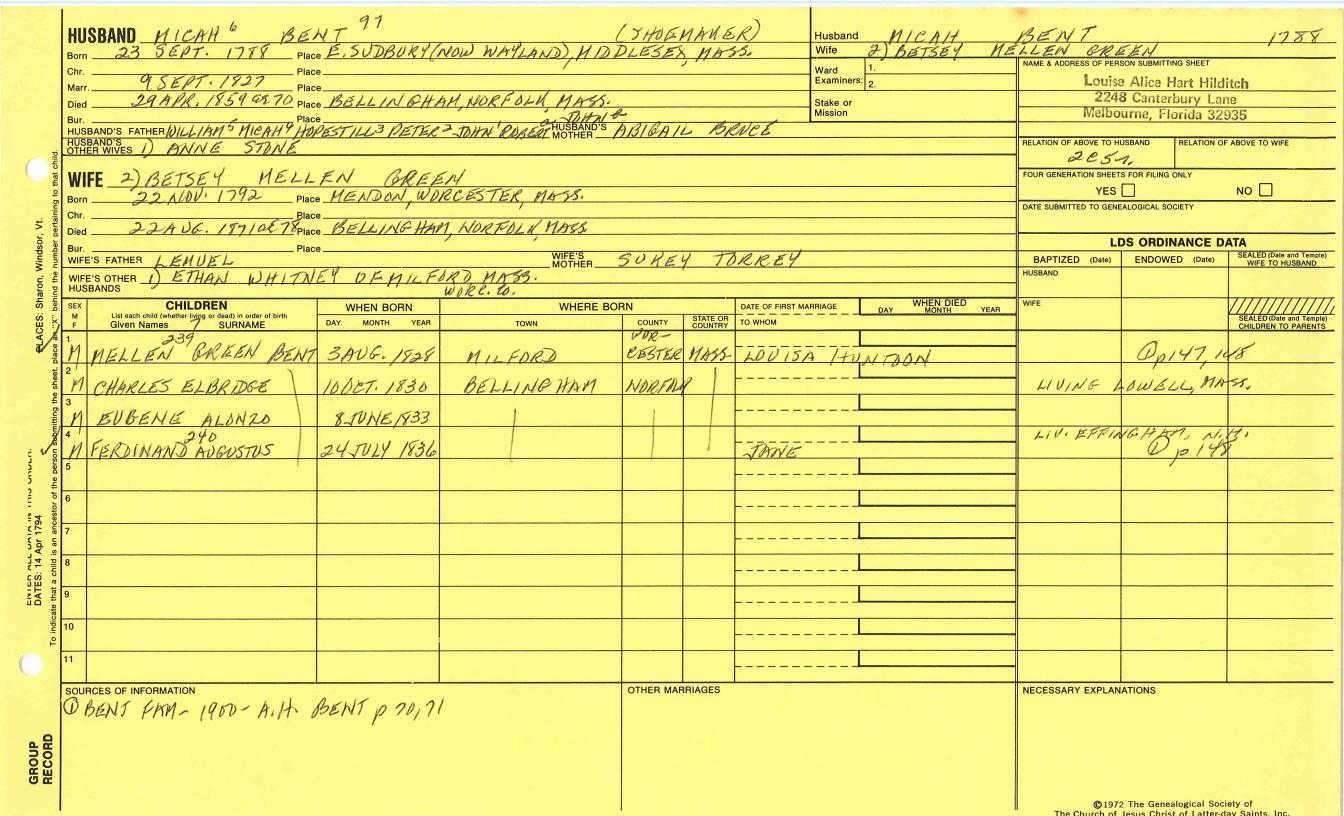 HUSBAND MICAH 6 BENT 97 (SHOEMAKER)
Born 23 SEPT. 1788 Place E. SUDBURY (NOW WAYLAND), MIDDLESEX, MASS.
Chr. Place
Marr. 9 SEPT. 1827 Place
Died 29 APR. 1859 æ 70 Place BELLINGHAM, NORFOLK, MASS.
Bur. Place
HUSBAND'S FATHER WILLIAM 5 MICAH 4 HOPESTILL 3 PETER 2 JOHN 1 ROBERT a JOHN b HUSBAND'S MOTHER ABIGAIL BRUCE
HUSBAND'S OTHER WIVES 1) ANNE STONE
WIFE 2) BETSEY MELLEN GREEN
Born 22 NOV. 1792 Place MENDON, WORCESTER, MASS.
Chr. Place
Died 22 AUG. 1871 æ 78 Place BELLINGHAM, NORFOLK, MASS
Bur. Place
WIFE'S FATHER LEMUEL WIFE'S MOTHER SUKEY TORREY
WIFE'S OTHER HUSBANDS 1) ETHAN WHITNEY OF MILFORD, MASS.
WORC. CO.
Husband MICAH BENT 1788
Wife 2) BETSEY MELLEN GREEN
Ward Examiners: 1.
2.
Stake or Mission
NAME & ADDRESS OF PERSON SUBMITTING SHEET
Louise Alice Hart Hilditch
2248 Canterbury Lane
Melbourne, Florida 32935
RELATION OF ABOVE TO HUSBAND RELATION OF ABOVE TO WIFE
2C5r.
FOUR GENERATION SHEETS FOR FILING ONLY
YES NO
DATE SUBMITTED TO GENEALOGICAL SOCIETY
LDS ORDINANCE DATA
BAPTIZED (Date) ENDOWED (Date) SEALED (Date and Temple) WIFE TO HUSBAND
HUSBAND
WIFE
SEALED (Date and Temple) CHILDREN TO PARENTS
SEX M F
CHILDREN
List each child (whether living or dead) in order of birth
Given Names SURNAME
WHEN BORN
DAY MONTH YEAR
WHERE BORN
TOWN COUNTY STATE OR COUNTRY
DATE OF FIRST MARRIAGE
TO WHOM
WHEN DIED
DAY MONTH YEAR
1 M 239 MELLEN GREEN BENT 3 AUG. 1828 MILFORD WORCESTER MASS. LOUISA HUNTOON ① p147, 148
2 M CHARLES ELBRIDGE 10 OCT. 1830 BELLINGHAM NORFOLK LIVING LOWELL, MASS.
3 M EUGENE ALONZO 8 JUNE 1833
4 M 240 FERDINAND AUGUSTUS 24 JULY 1836 JANE LIV. EFFINGHAM, N.H. ① p 148
5
6
7
8
9
10
11
SOURCES OF INFORMATION
① BENT FAM - 1900 - A.H. BENT p 70, 71
OTHER MARRIAGES
NECESSARY EXPLANATIONS
©1972 The Genealogical Society of
The Church of Jesus Christ of Latter-day Saints, Inc.
PLACES: Sharon, Windsor, Vt.
ENTER ALL DATA IN THIS ORDER:
DATES: 14 Apr 1794
To indicate that a child is an ancestor of the person submitting the sheet, place an "X" behind the number pertaining to that child.
GROUP RECORD